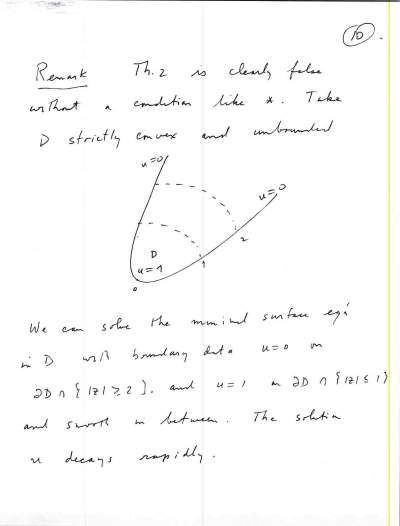 10.
Remark Th. 2 is clearly false
without a condition like *. Take
D strictly convex and unbounded
u=0
u=0
2
D
u=1
1
0
We can solve the minimal surface eq'n
in D with boundary data u=0 on
∂D ∩ {|z| ≥ 2}. and u=1 on ∂D ∩ {|z| ≤ 1}
and smooth in between. The solution
u decays rapidly.